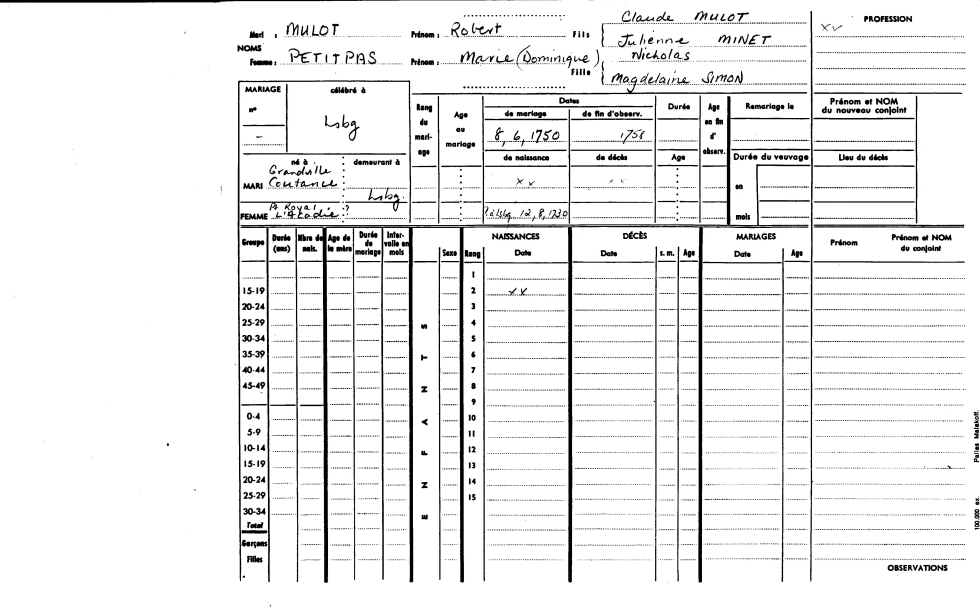 Mari : MULOT Prénom : Robert Fils Claude MULOT PROFESSION
Julienne MINET xv
NOMS
Femme : PETITPAS Prénom : Marie (Dominique) Fille Nicholas
Magdelaine SIMON
MARIAGE célébré à Rang du mari-age Age au mariage Dates Durée Age en fin d' observ. Remariage le Prénom et NOM du nouveau conjoint
n° de mariage de fin d'observ.
- Lsbg 8, 6, 1750 1758
de naissance de décès Age Durée du veuvage Lieu du décès
né à demeurant à
MARI Grandville Coutance Lsbg. xv xv en
FEMME Pt Royal L'Acadie ? Lsbg 12, 8, 1730 mois
Groupe Durée (ans) Nbre de nais. Age de la mère Durée de mariage Inter-valle en mois Sexe Rang NAISSANCES DÉCÈS MARIAGES Prénom Prénom et NOM du conjoint
Date Date s. m. Age Date Age
1
15-19 2 xv
20-24 3
25-29 S 4
30-34 5
35-39 T 6
40-44 7
45-49 N 8
9
0-4 A 10
5-9 11
10-14 F 12
15-19 13
20-24 N 14
25-29 15
30-34 E
Total
Garçons
Filles
OBSERVATIONS
100.000 ex. Pallas Malakoff.